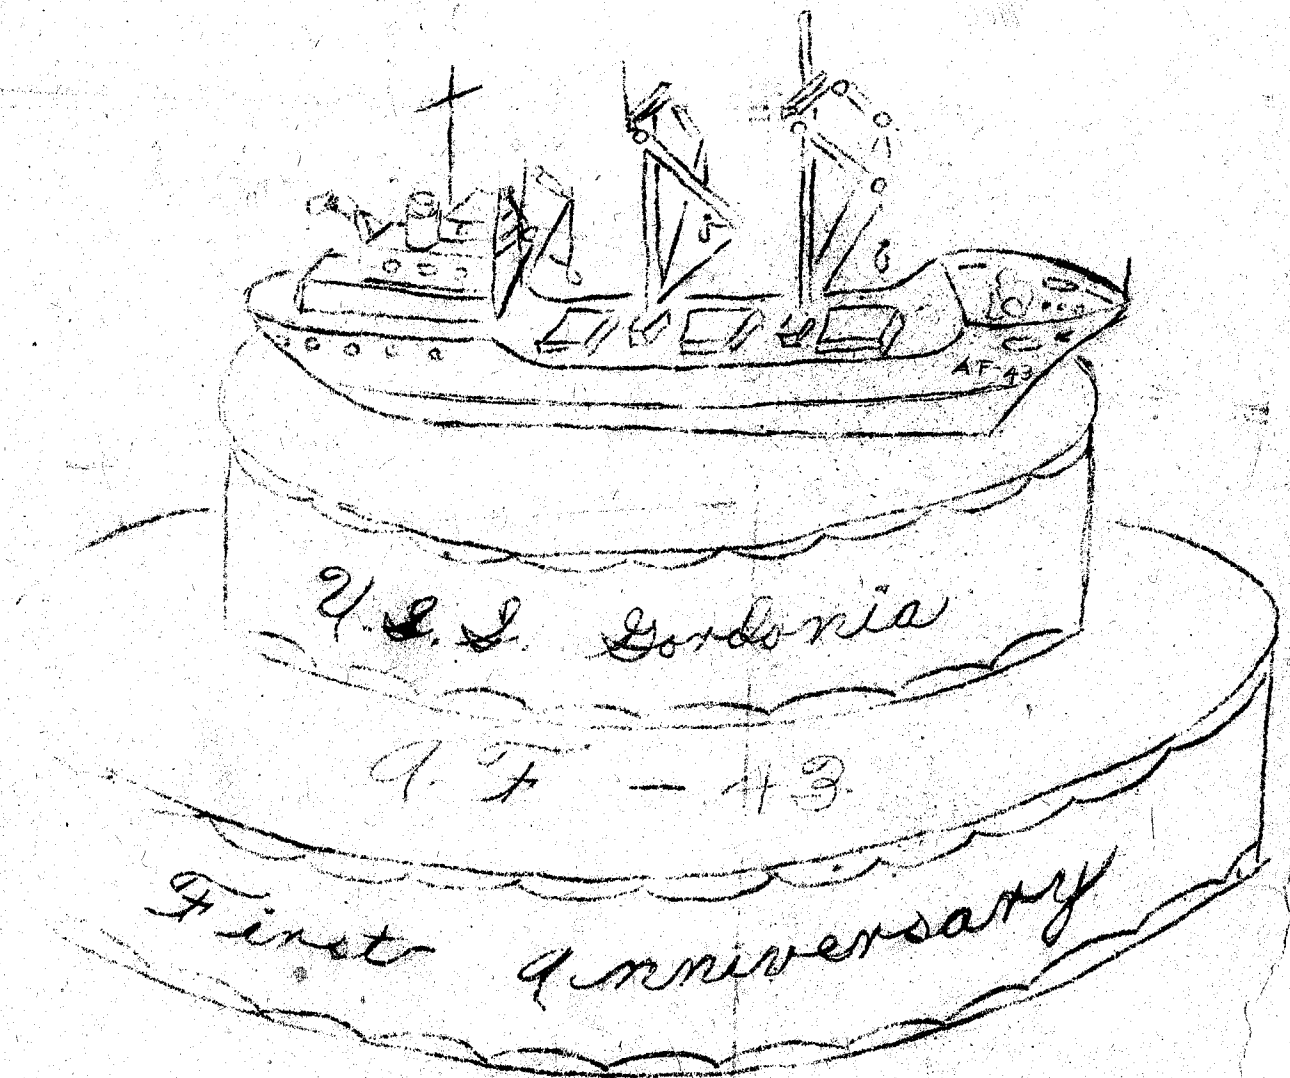 AF-43
U.S.S. Gordonia
A.F-43
First Anniversary